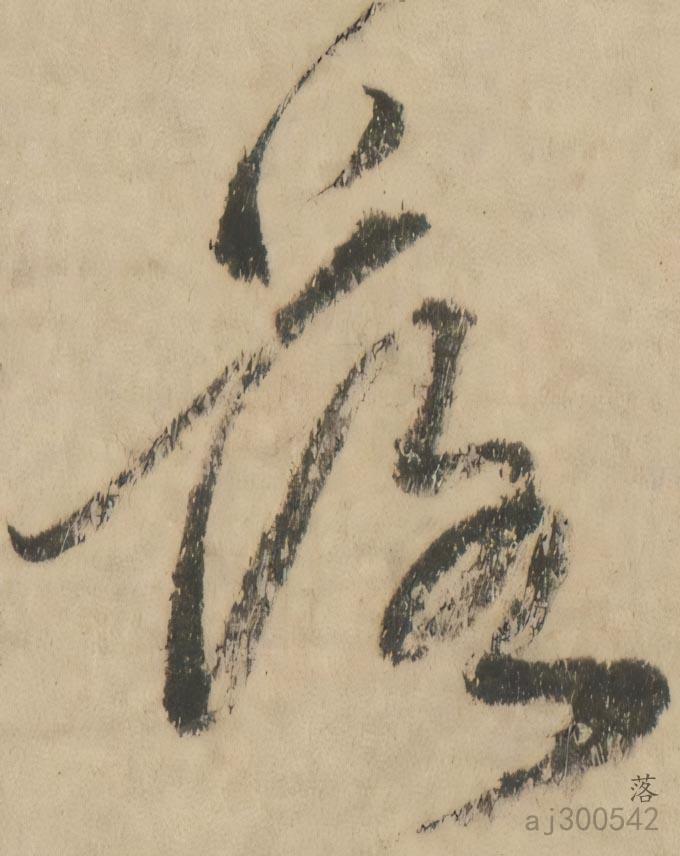 落
落
aj300542